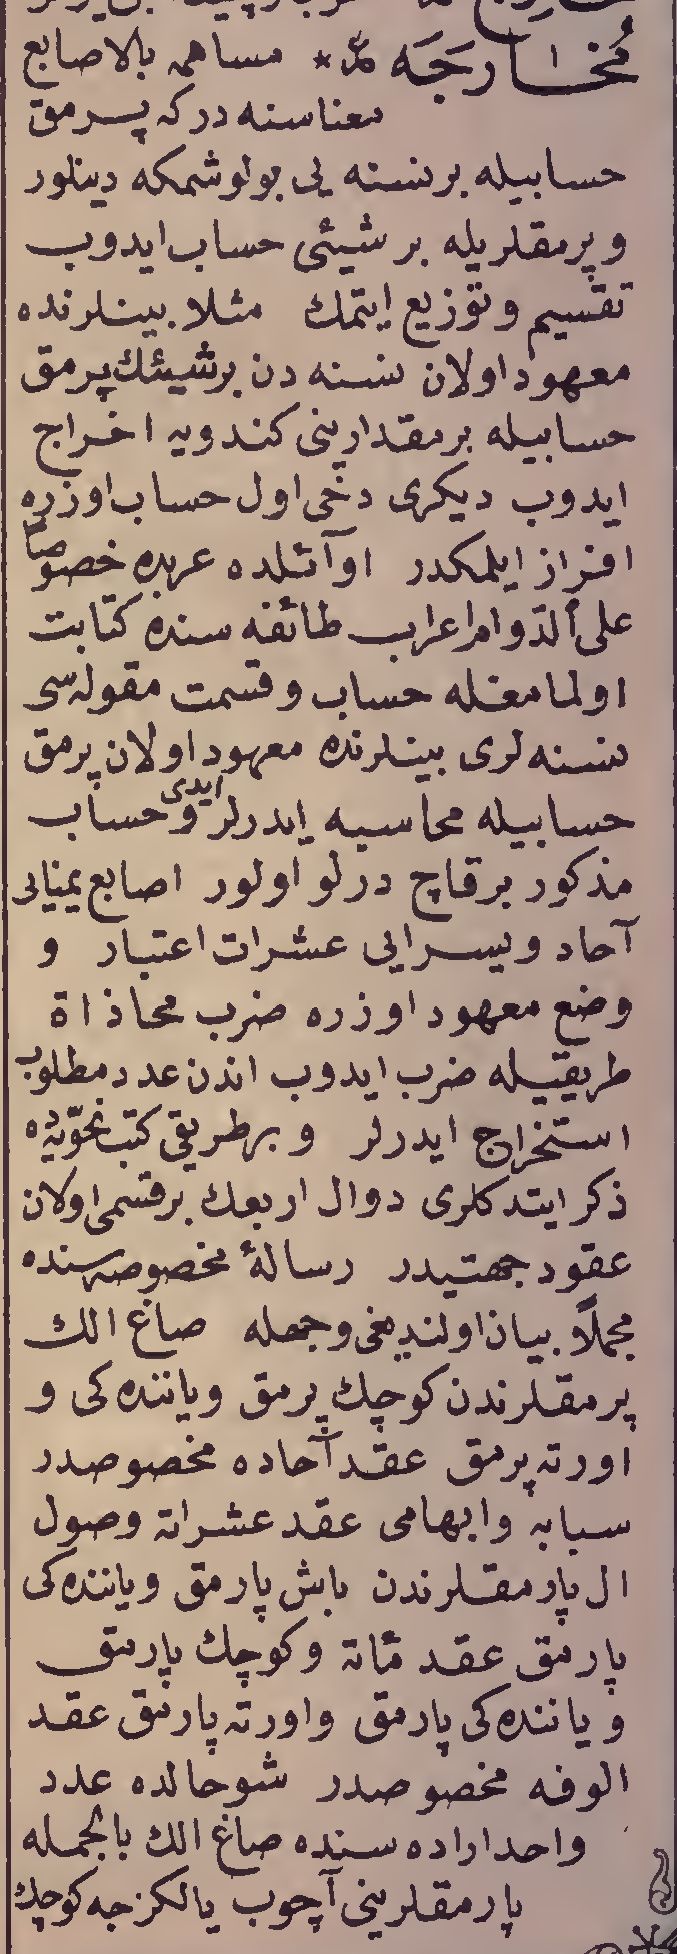 مُخَارَجَه ⁕ مساهمه بالاصابع
معناسنه در كه پرمق
حسابيله بر نسنه يى بولوشمكه دينلور
و پرمقلريله بر شيئى حساب ايدوب
تقسيم و توزيع ايتمك مثلا بينلرنده
معهود اولان نسنه دن بر شيئك پرمق
حسابيله بر مقدارينى كندويه اخراج
ايدوب ديكرى دخى اول حساب اوزره
افراز ايلمكدر اوآئلده عربده خصوصاً
على الدوام اعراب طائفه سنده كتابت
اولمامغله حساب و قسمت مقوله سى
نسنه لرى بينلرنده معهود اولان پرمق
حسابيله محاسبه ايدرلر ايدى و حساب
مذكور بر قاچ درلو اولور اصابع يمنايى
آحاد و يسرايى عشرات اعتبار و
وضع معهود اوزره ضرب محاذاة
طريقيله ضرب ايدوب اندن عدد مطلوب
استخراج ايدرلر و بر طريقى كتب نحويه ده
ذكر ايتدكلرى دوال اربعك بر قسمى اولان
عقود جهتيدر رسالۀ مخصوصه سنده
مجملاً بيان اولنديغى وجهله صاغ الك
پرمقلرندن كوچك پرمق و ياننده كى و
اورته پرمق عقد آحاده مخصوصدر
سبابه و ابهامى عقد عشراته و صول
ال پارمقلرندن باش پارمق و ياننده كى
پارمق عقد مئاته و كوچك پارمق
و ياننده كى پارمق و اورته پارمق عقد
الوفه مخصوصدر شو حالده عدد
واحد اراده سنده صاغ الك بالجمله
پارمقلرينى آچوب يالكزجه كوچك